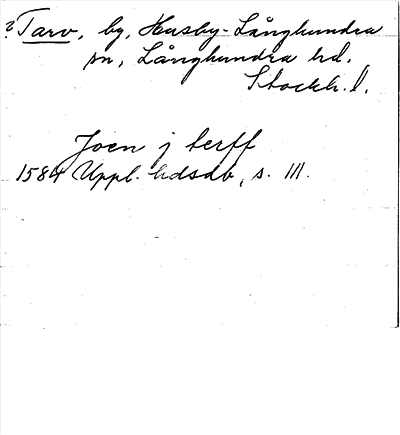 ? Tarv, by, Husby-Långhundra
sn, Långhundra hd.
Stockh. l.
Joen j terff
1584 Uppl. hdsdb, s. 111.